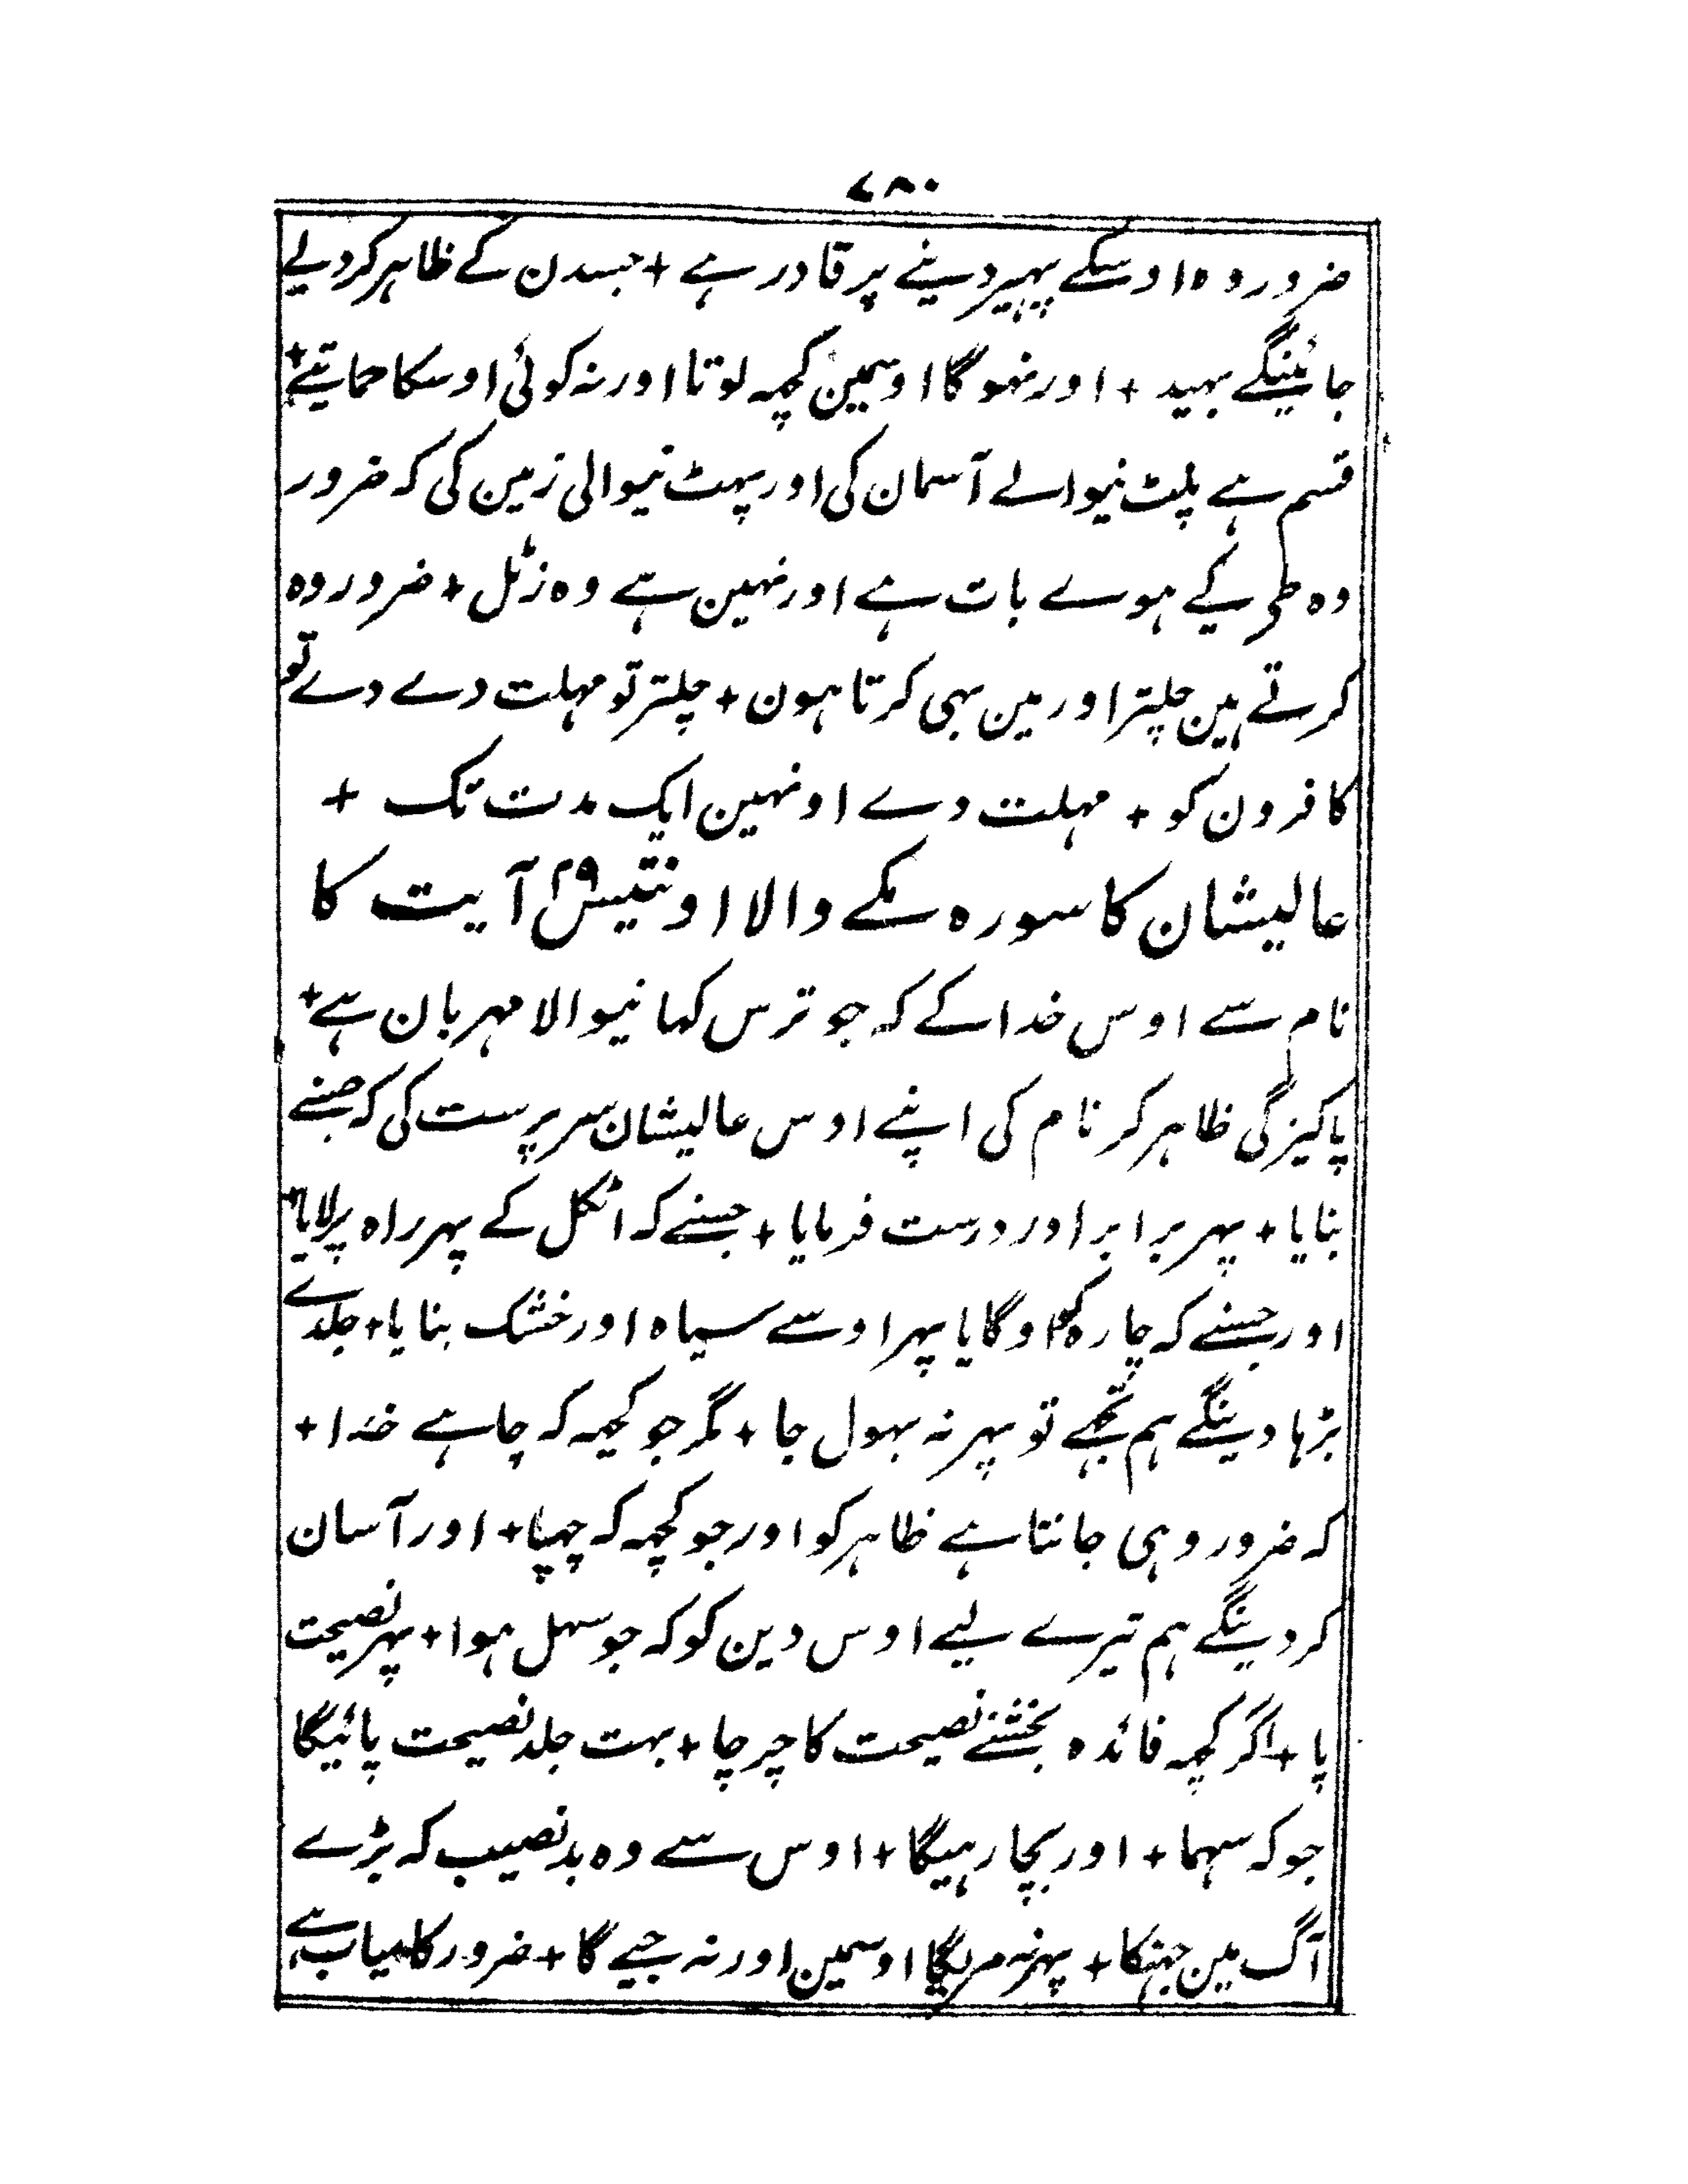 ۷۸۰
ضرور وہ اوسکے پہیر دینے پر قادر ہے + جسدن کے ظاہر کر دیے
جائینگے بہید + اور نہوگا اوسمین کچہہ لوتا اور نہ کوئی اوسکا حمایتیے +
قسم ہے پلٹ نیوالے آسمان کی اور پہٹ نیوالی زمین کی کہ ضرور
وہ طے کیے ہوے بات ہے اور نہین ہے وہ زٹل + ضرور وہ
کرتے ہین چلتر اور مین بہی کرتا ہون + چلتر تو مہلت دے دے تو
کافرون کو + مہلت دے اونہین ایک مدت تک +
عالیشان کا سورہ مکے والا اونتیس ۲۹ آیت کا
نام سے اوس خدا کے کہ جو ترس کہا نیوالا مہربان ہے +
پاکیزگی ظاہر کر نام کی اپنے اوس عالیشان سرپرست کی کہ جسنے
بنایا + پہر برابر اور درست فرمایا + جسنے کہ اٹکل کے پہر راہ پر لایا +
اور جسنے کہ چارہ کو اوگایا پہر اوسے سیاہ اور خشک بنایا + جلدے
بڑہا دینگے ہم تجہے تو پہر نہ بہول جا + مگر جو کچہہ کہ چاہے خدا +
کہ ضرور وہی جانتا ہے ظاہر کو اور جو کچہہ کہ چہپا + اور آسان
کر دینگے ہم تیرے لیے اوس دین کو کہ جو سہل ہوا + پہر نصیحت
پا + اگر کچہہ فائدہ بخشنے نصیحت کا چرچا + بہت جلد نصیحت پائیگا
جو کہ سہما + اور بچا رہیگا + اوس سے وہ بدنصیب کہ بڑے
آگ مین جہنکا + پہر نہ مریگا اوسمین اور نہ جیے گا + ضرور کامیاب ہے